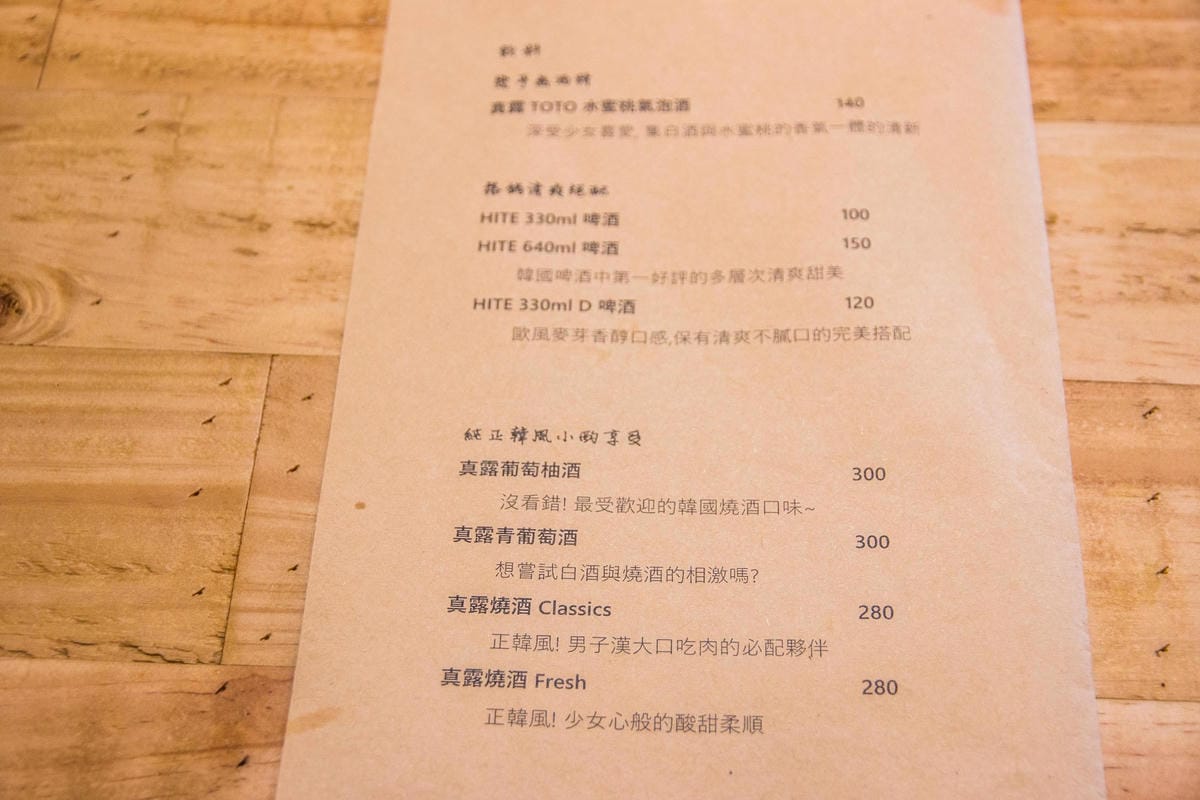 真露 TOTO 水蜜桃氣泡酒 140
深受少女喜愛, 集白酒與水蜜桃的香氣一體的清新
清爽絕配
HITE 330ml 啤酒 100
HITE 640ml 啤酒 150
韓國啤酒中第一好評的多層次清爽甜美
HITE 330ml D 啤酒 120
歐風麥芽香醇口感,保有清爽不膩口的完美搭配
純正韓風小酌享受
真露葡萄柚酒 300
沒看錯! 最受歡迎的韓國燒酒口味~
真露青葡萄酒 300
想嘗試白酒與燒酒的相激嗎?
真露燒酒 Classics 280
正韓風! 男子漢大口吃肉的必配夥伴
真露燒酒 Fresh 280
正韓風! 少女心般的酸甜柔順